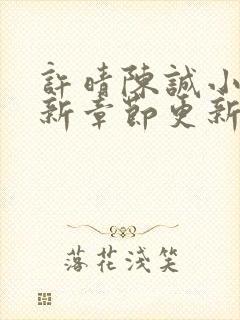 許晴陳誠小
新章節更新
落花淺笑